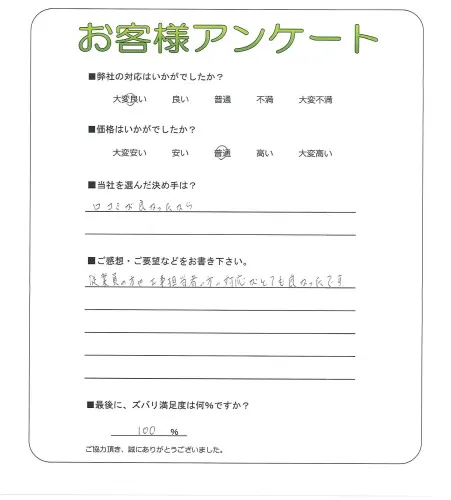 お客様アンケート
■弊社の対応はいかがでしたか？
大変良い 良い 普通 不満 大変不満
■価格はいかがでしたか？
大変安い 安い 普通 高い 大変高い
■当社を選んだ決め手は？
口コミが良かったから
■ご感想・ご要望などをお書き下さい。
従業員の方や工事担当者の方の対応がとても良かったです
■最後に、ズバリ満足度は何％ですか？
100 %
ご協力頂き、誠にありがとうございました。